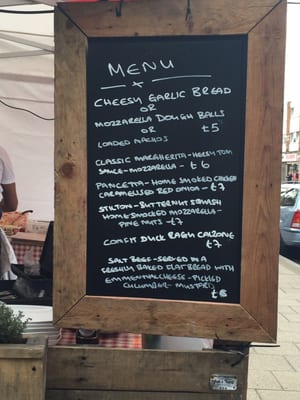 MENU
CHEESY GARLIC BREAD
OR
MOZZARELLA DOUGH BALLS
OR £5
LOADED NACHOS
CLASSIC MARGHERITA - HERBY TOM
SAUCE - MOZZARELLA - £6
PANCETTA - HOME SMOKED CHICKEN
CARAMELISED RED ONION - £7
STILTON - BUTTERNUT SQUASH
HOME SMOKED MOZZARELLA -
PINE NUTS - £7
CONFIT DUCK RAGU CALZONE
£7
SALT BEEF - SERVED IN A
FRESHLY BAKED FLATBREAD WITH
EMMENTAL CHEESE - PICKLED
CUCUMBER - MUSTARD